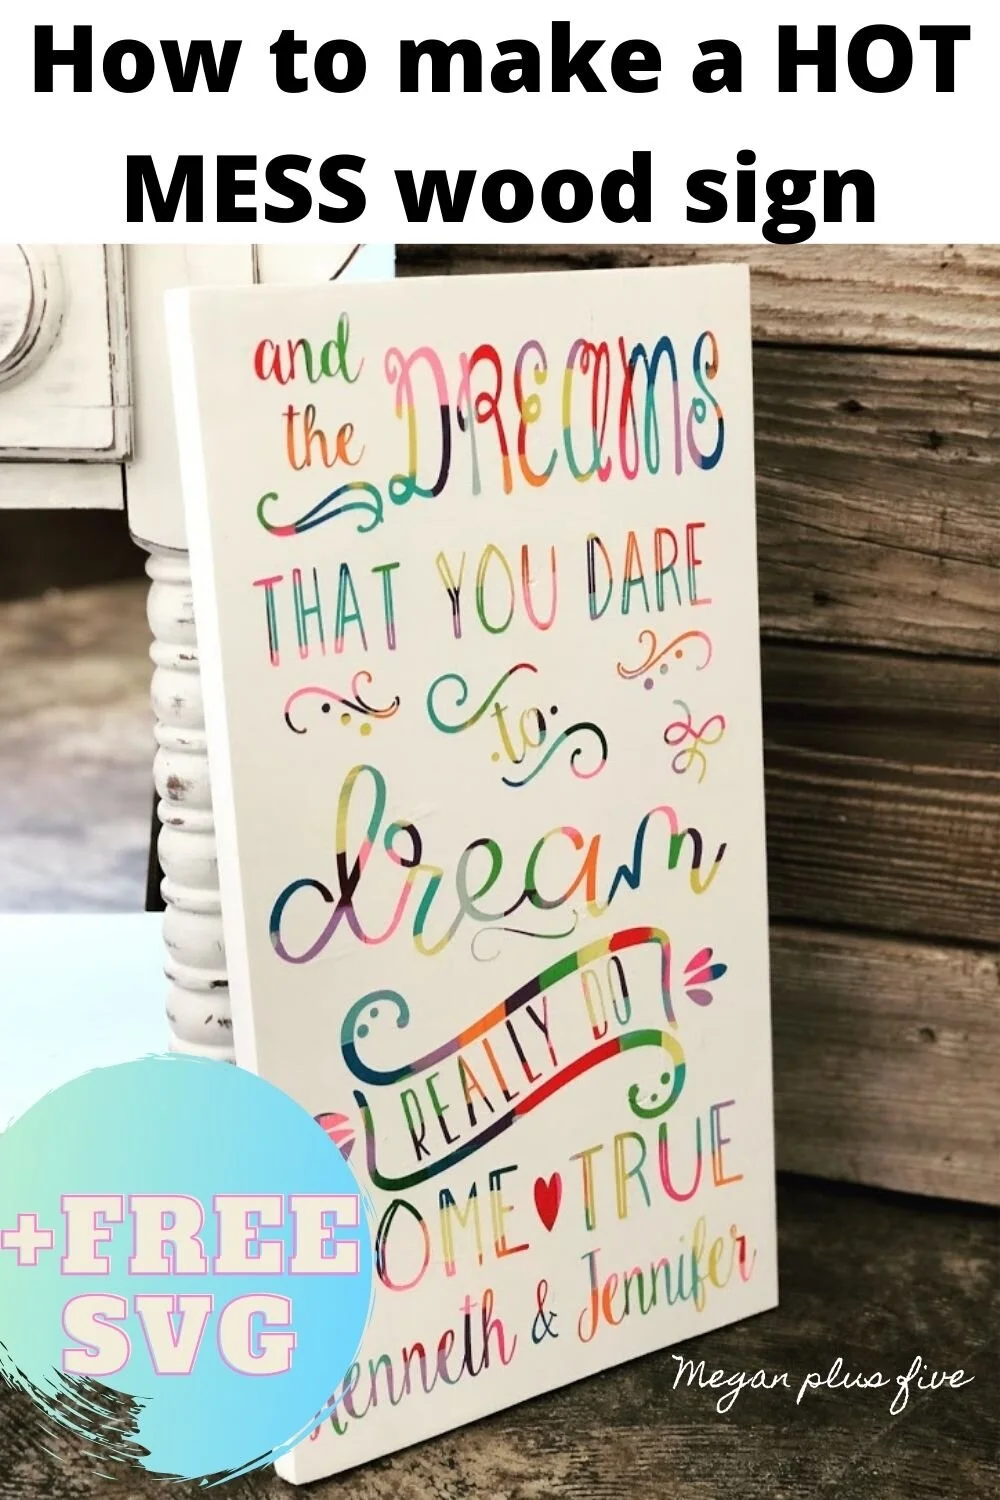 How to make a HOT
MESS wood sign
and
the
DREAMS
THAT YOU DARE
to
dream
REALLY DO
OME TRUE
enneth & Jennifer
+FREE
SVG
Megan plus five